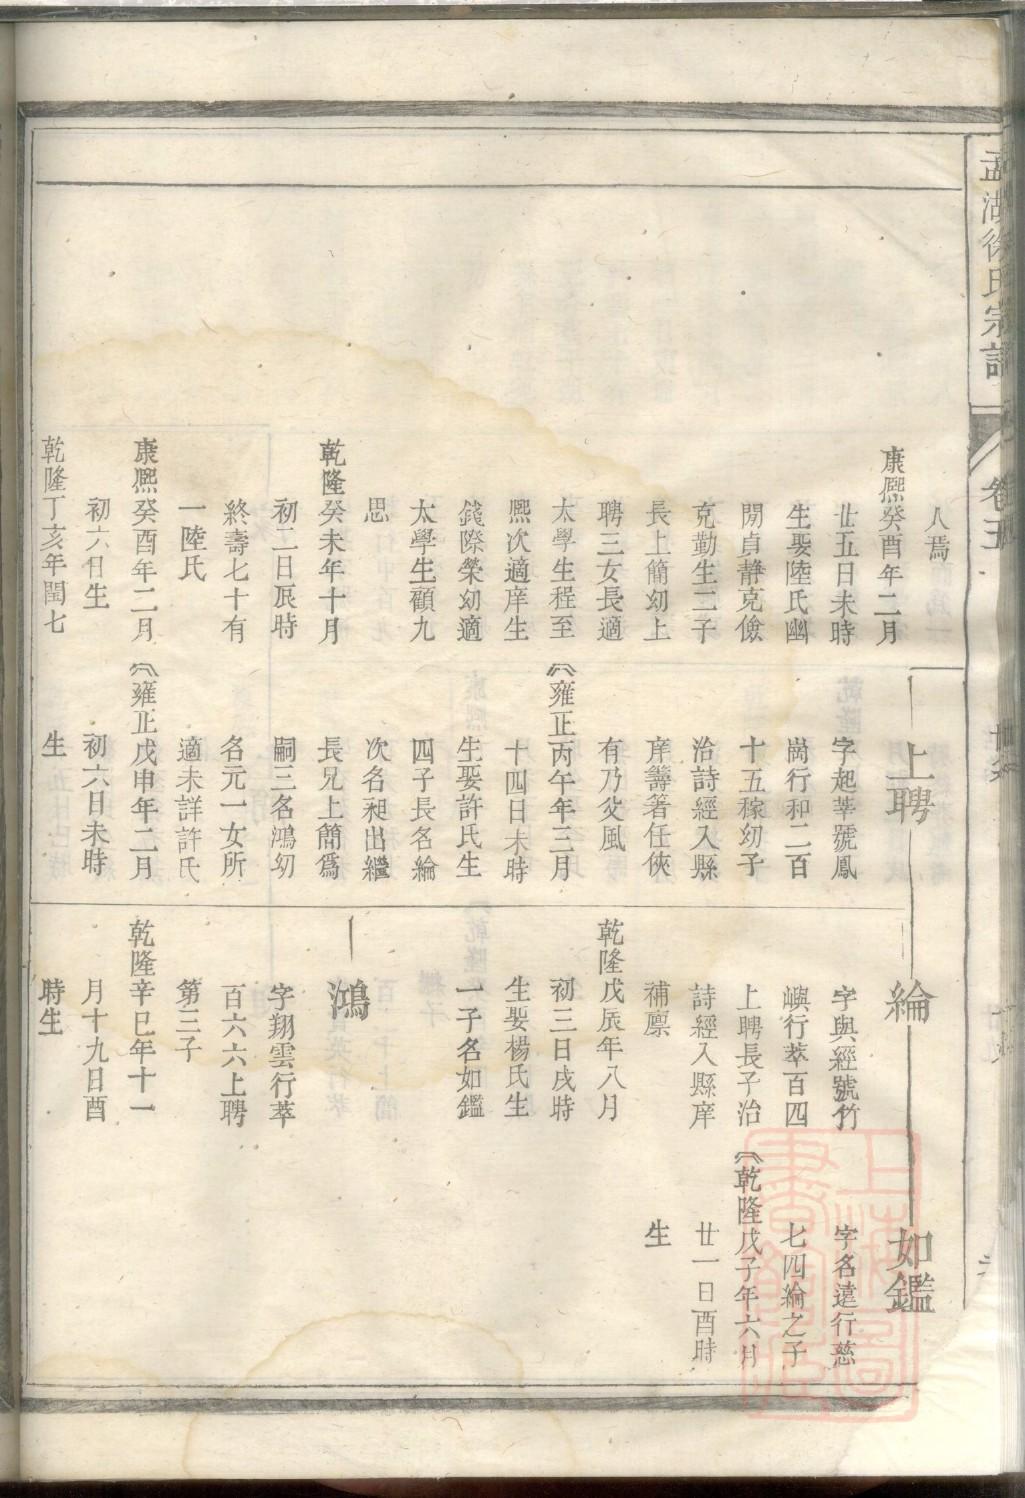 孟湖徐氏宗譜
卷五
八焉
康熈癸酉年二月
廿五日未時
生娶陸氏幽
閒貞静克儉
克勤生二子
長上簡幼上
聘三女長適
太學生程至
熈次適庠生
錢際榮幼適
太學生顧九
思
乾隆癸未年十月
初二日辰時
終壽七十有
一陸氏
康熈癸酉年二月
初六日生
乾隆丁亥年閏七
上聘
字起莘號鳳
崗行和二百
十五稼幼子
治詩經入縣
庠籌著任俠
有乃父風
雍正丙午年三月
十四日未時
生娶許氏生
四子長名綸
次名昶出繼
長兄上簡爲
嗣三名鴻幼
名元一女所
適未詳許氏
雍正戊申年二月
初六日未時
生
綸
字與經號竹
嶼行萃百四
上聘長子治
詩經入縣庠
補廪
乾隆戊辰年八月
初三日戌時
生娶楊氏生
一子名如鑑
鴻
字翔雲行萃
百六六上聘
第三子
乾隆辛巳年十一
月十九日酉
時生
如鑑
字名遠行慈
七四綸之子
乾隆戊子年六月
廿一日酉時
生